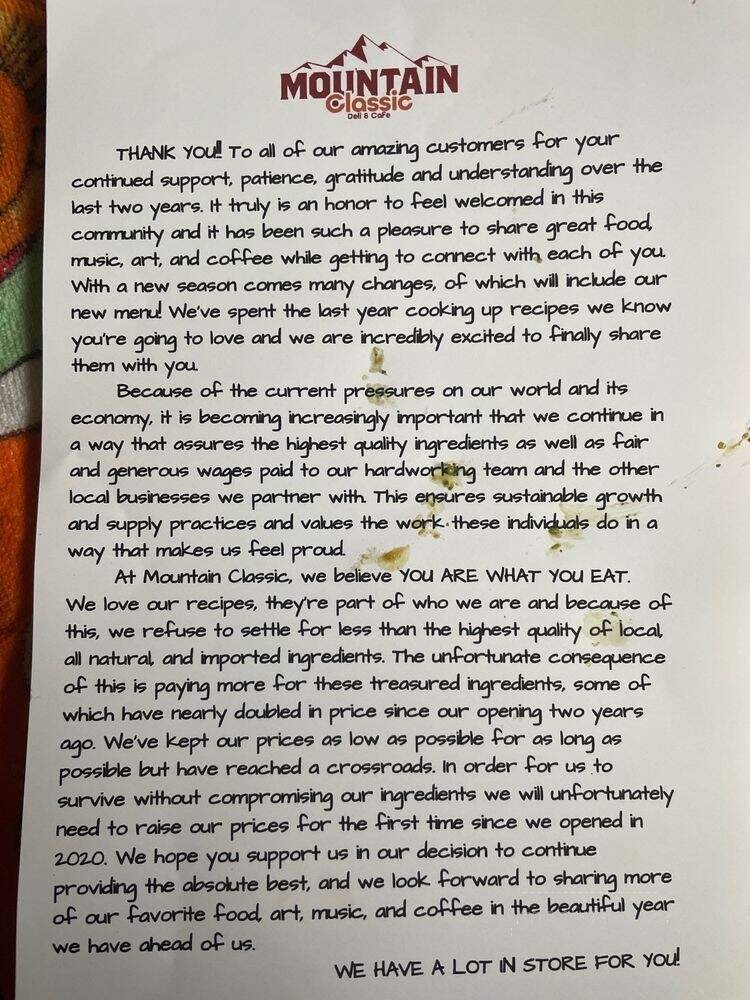 MOUNTAIN
Classic
Deli & Cafe
THANK YOU!! To all of our amazing customers for your
continued support, patience, gratitude and understanding over the
last two years. It truly is an honor to feel welcomed in this
community and it has been such a pleasure to share great food,
music, art, and coffee while getting to connect with each of you.
With a new season comes many changes, of which will include our
new menu! We've spent the last year cooking up recipes we know
you're going to love and we are incredibly excited to finally share
them with you.
Because of the current pressures on our world and its
economy, it is becoming increasingly important that we continue in
a way that assures the highest quality ingredients as well as fair
and generous wages paid to our hardworking team and the other
local businesses we partner with. This ensures sustainable growth
and supply practices and values the work these individuals do in a
way that makes us feel proud.
At Mountain Classic, we believe YOU ARE WHAT YOU EAT.
We love our recipes, they're part of who we are and because of
this, we refuse to settle for less than the highest quality of local,
all natural, and imported ingredients. The unfortunate consequence
of this is paying more for these treasured ingredients, some of
which have nearly doubled in price since our opening two years
ago. We've kept our prices as low as possible for as long as
possible but have reached a crossroads. In order for us to
survive without compromising our ingredients we will unfortunately
need to raise our prices for the first time since we opened in
2020. We hope you support us in our decision to continue
providing the absolute best, and we look forward to sharing more
of our favorite food, art, music, and coffee in the beautiful year
we have ahead of us.
WE HAVE A LOT IN STORE FOR YOU!